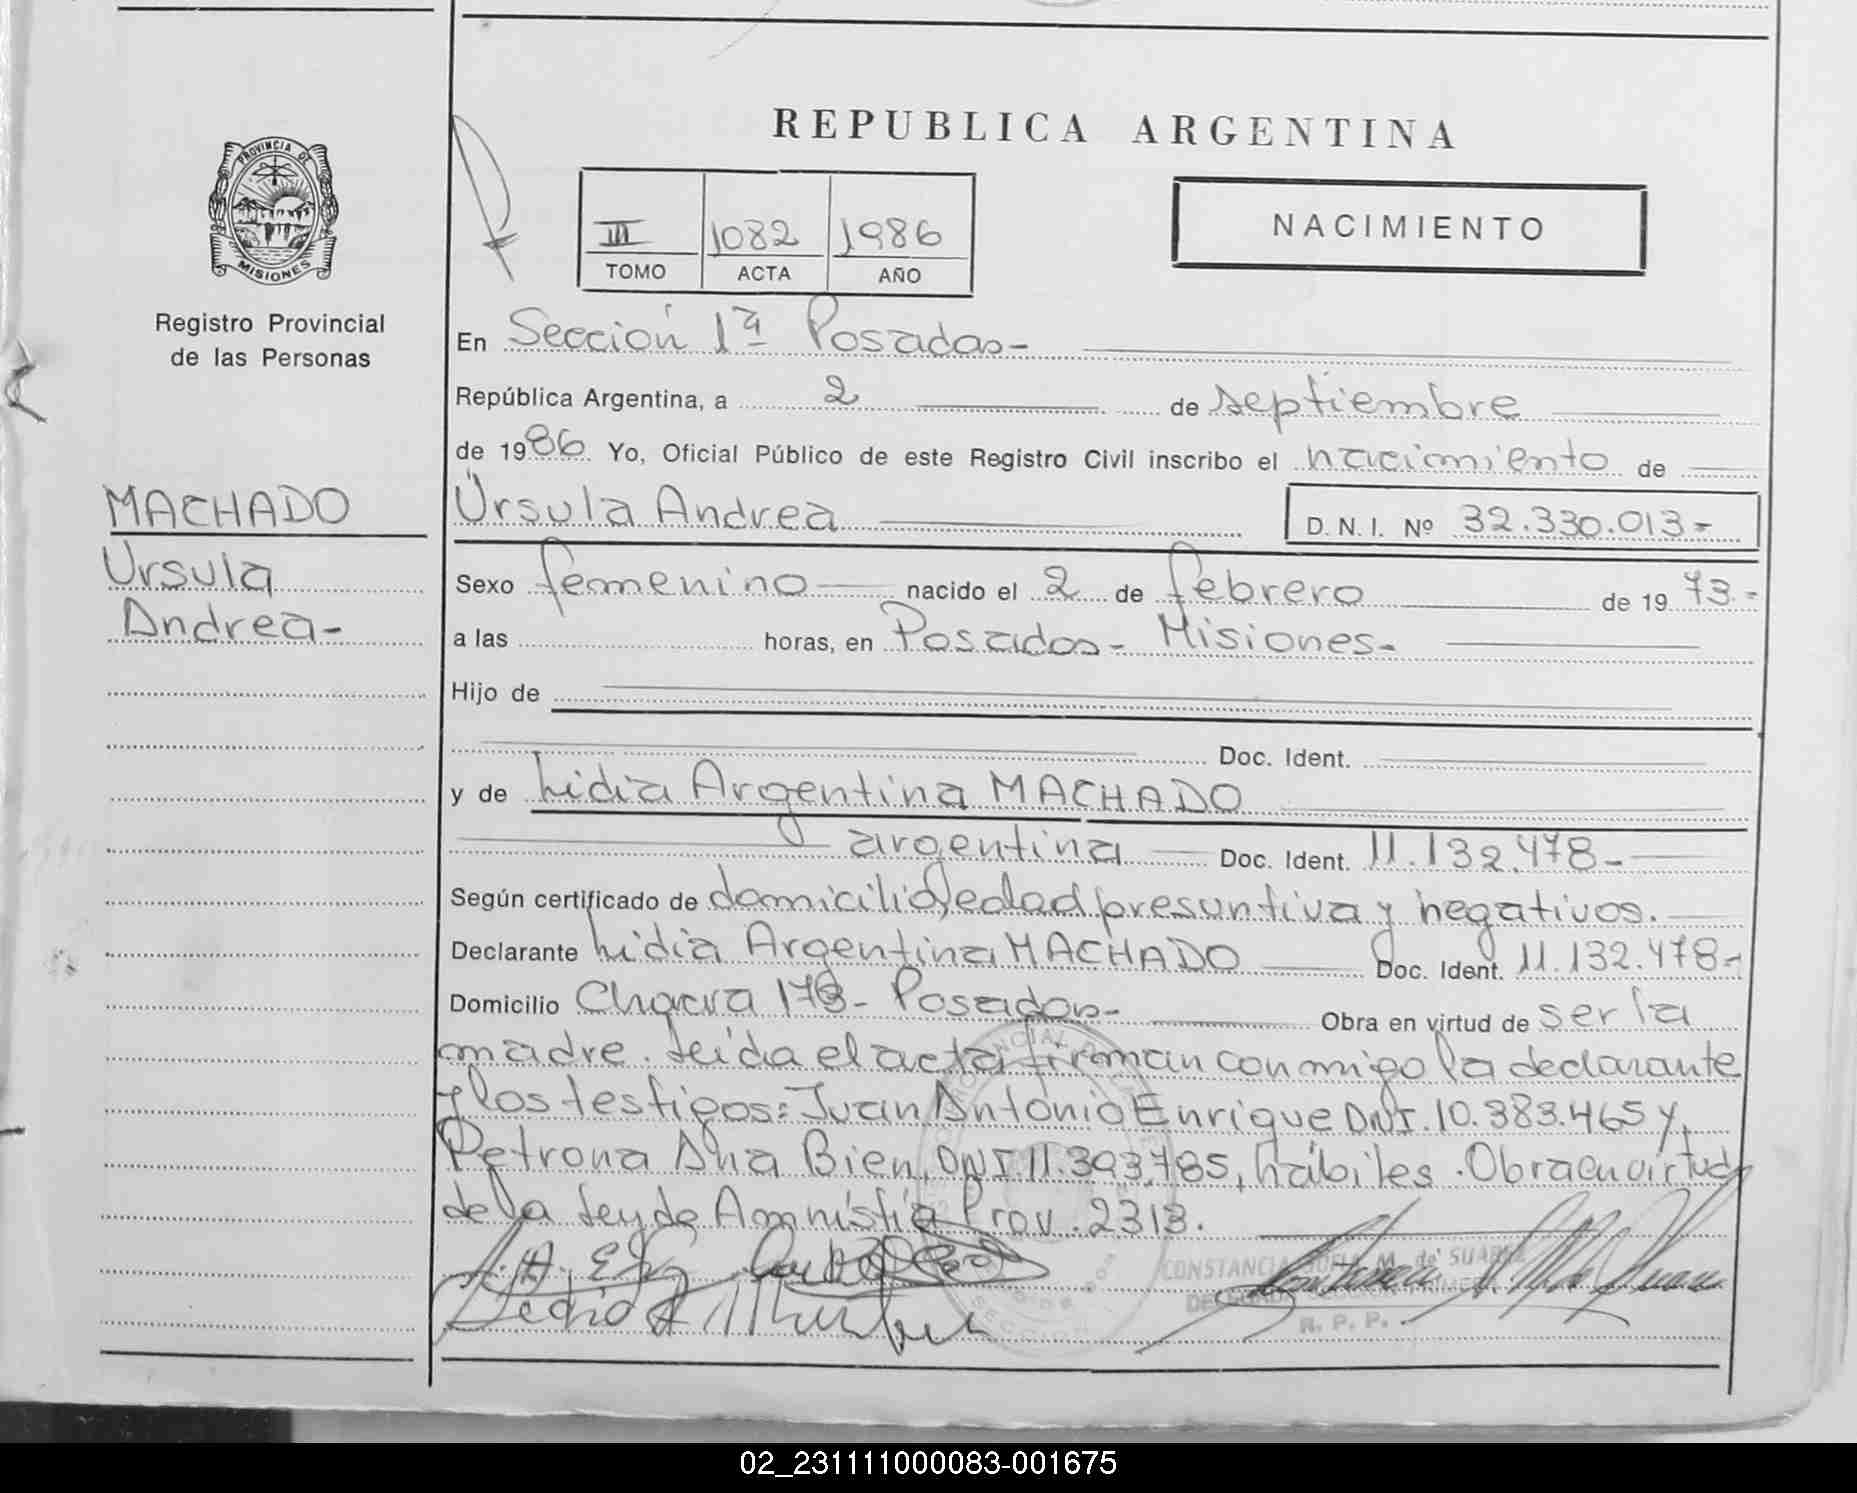 REPUBLICA ARGENTINA
PROVINCIA DE
MISIONES
Registro Provincial
de las Personas
III 1082 1986
TOMO ACTA AÑO
NACIMIENTO
En Sección 1ª Posadas-
República Argentina, a 2 de septiembre
de 1986 Yo, Oficial Público de este Registro Civil inscribo el nacimiento de
MACHADO
Ursula
Andrea-
Ursula Andrea D. N. I. Nº 32.330.013-
Sexo femenino nacido el 2 de febrero de 1973-
a las horas, en Posadas- Misiones-
Hijo de
Doc. Ident.
y de Lidia Argentina MACHADO
argentina Doc. Ident. 11.132.478-
Según certificado de domicilio, edad presuntiva y negativos.
Declarante Lidia Argentina MACHADO Doc. Ident. 11.132.478-
Domicilio Chacra - Posadas- Obra en virtud de ser la
madre. Leída el acta firman conmigo la declarante
y los testigos: Juan Antonio Enrique DNI. 10.383.465 y
Petrona Ana Bien, DNI 11.393.785, hábiles. Obra en virtud
de la Ley de Amnistía Prov. 2313.
CONSTANCIA M. de SUAREZ
R. P. P.
SECCION
02_231111000083-001675